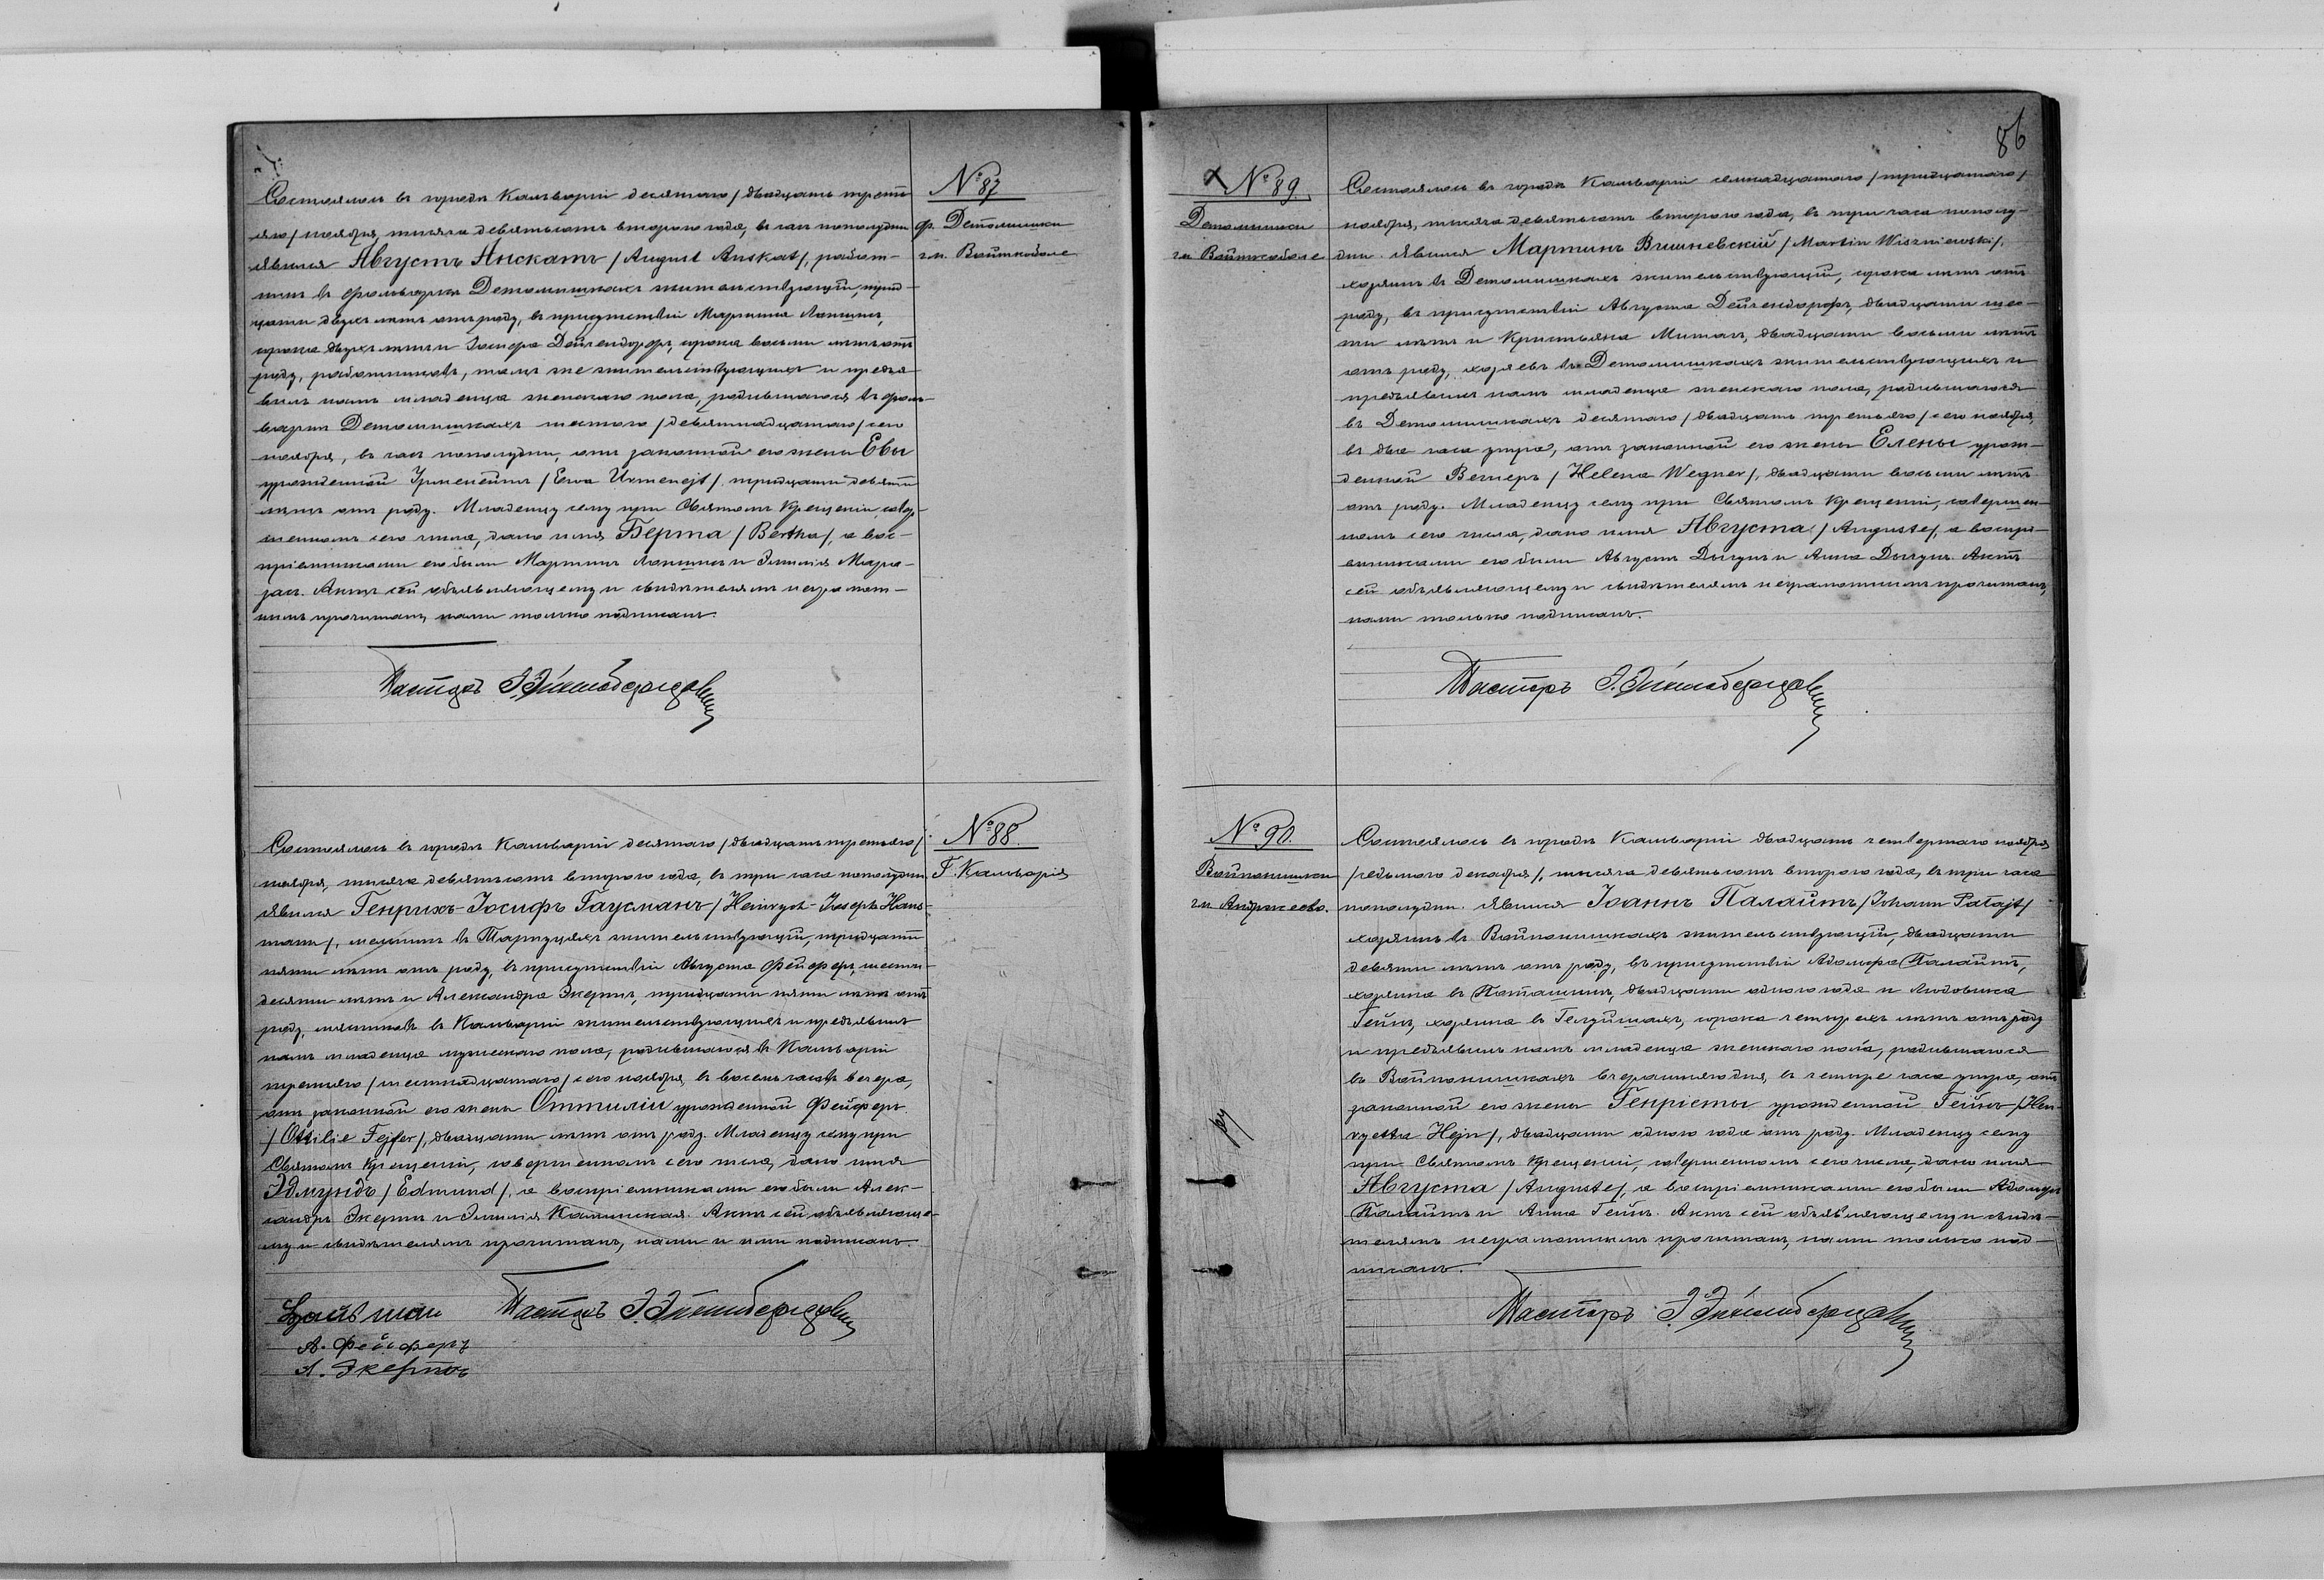 № 87
ф. Детомишки
гм. Войткоболе
Состоялось въ городѣ Кальваріи десятаго /двадцать треть-
яго/ ноября, тысяча девятьсотъ второго года, въ часъ пополудни
явился Августъ Анскатъ /August Anskat/, работ-
никъ въ фольваркѣ Детомишкахъ жительствующій, трид-
цати двухъ лѣтъ отъ роду, въ присутствіи Мартина
сорока двухъ лѣтъ и Іосифа Дейгендорфъ, сорока восьми лѣтъ отъ
роду, работниковъ, тамъ же жительствующихъ и предъя-
вилъ намъ младенца женскаго пола, родившагося въ фоль-
варкѣ Детомишкахъ шестого /девятнадцатаго/ сего
ноября, въ часъ пополудни, отъ законной его жены Евы
урожденной Урменейтъ /Ewa Urmenejt/, тридцати девяти
лѣтъ отъ роду. Младенцу сему при Святомъ Крещеніи, совер-
шенномъ сего числа, дано имя Берта /Bertha/, а вос-
пріемниками его были Мартинъ и Эмилія
Актъ сей объявляющему и свидѣтелямъ неграмот-
нымъ прочитанъ, нами только подписанъ.
Пасторъ Э.
№ 88.
Г. Кальварія
Состоялось въ городѣ Кальваріи десятаго /двадцать третьяго/
ноября, тысяча девятьсотъ второго года, въ три часа пополудни
явился Генрихъ-Іосифъ Гаусманъ /Heinrych-Joseph Haus-
mann/, въ жительствующій, тридцати
пяти лѣтъ отъ роду, въ присутствіи Августа Фейферъ, шести-
десяти лѣтъ и Александра Экертъ, тридцати пяти лѣтъ отъ
роду, въ Кальваріи жительствующихъ и предъявилъ
намъ младенца мужескаго пола, родившагося въ Кальваріи
третьяго /шестнадцатаго/ сего ноября, въ восемь часовъ вечера,
отъ законной его жены Оттиліи урожденной Фейферъ
/Ottilie Fejfer/, двадцати лѣтъ отъ роду. Младенцу сему при
Святомъ Крещеніи, совершенномъ сего числа, дано имя
Эдмундъ /Edmund/, а воспріемниками его были Алек-
сандръ Экертъ и Эмилія Калинская. Актъ сей объявляюще-
му и свидѣтелямъ прочитанъ, нами и ими подписанъ.
Пасторъ Э.
А. Фейферъ
А. Экертъ
86
№ 89.
Детомишки
гм. Войткоболе
Состоялось въ городѣ Кальваріи семнадцатаго /тридцатаго/
ноября, тысяча девятьсотъ второго года, въ три часа пополу-
дни. Явился Мартинъ Вишневскій /Martin Wiszniewski/,
хозяинъ въ Детомишкахъ жительствующій, сорока лѣтъ отъ
роду, въ присутствіи Августа Дейгендорфъ, двадцати шес-
ти лѣтъ и Кристьяна двадцати восьми лѣтъ
отъ роду, хозяевъ въ Детомишкахъ жительствующихъ и
предъявилъ намъ младенца женскаго пола, родившагося
въ Детомишкахъ десятаго /двадцать третьяго/ сего ноября,
въ два часа утра, отъ законной его жены Елены урож-
денной Вегнеръ /Helena Wegner/, двадцати восьми лѣтъ
отъ роду. Младенцу сему при Святомъ Крещеніи, совершен-
номъ сего числа, дано имя Августа /Auguste/, а воспрі-
емниками его были Августъ и Анна Актъ
сей объявляющему и свидѣтелямъ неграмотнымъ прочитанъ,
нами только подписанъ.
Пасторъ Э.
№ 90.
Войпонишки
гм. Андржеево.
Состоялось въ городѣ Кальваріи двадцать четвертаго ноября
/седьмого декабря/, тысяча девятьсотъ второго года, въ три часа
пополудни. Явился Іоаннъ Палайтъ /Johann Patajt/
хозяинъ въ Войпонишкахъ жительствующій, двадцати
девяти лѣтъ отъ роду, въ присутствіи Адольфа Палайтъ,
хозяина въ двадцати одного года и Людовика
Гейнъ, хозяина въ сорока четырехъ лѣтъ отъ роду
и предъявилъ намъ младенца женскаго пола, родившагося
въ Войпонишкахъ вчерашняго дня, въ четыре часа утра, отъ
законной его жены Генріеты урожденной Гейнъ /Hen-
ryetta Hejn/, двадцати одного года отъ роду. Младенцу сему
при Святомъ Крещеніи, совершенномъ сего числа, дано имя
Августа /Auguste/, а воспріемниками его были Адольфъ
Палайтъ и Анна Гейнъ. Актъ сей объявляющему и свидѣ-
телямъ неграмотнымъ прочитанъ, нами только под-
писанъ.
Пасторъ Э.